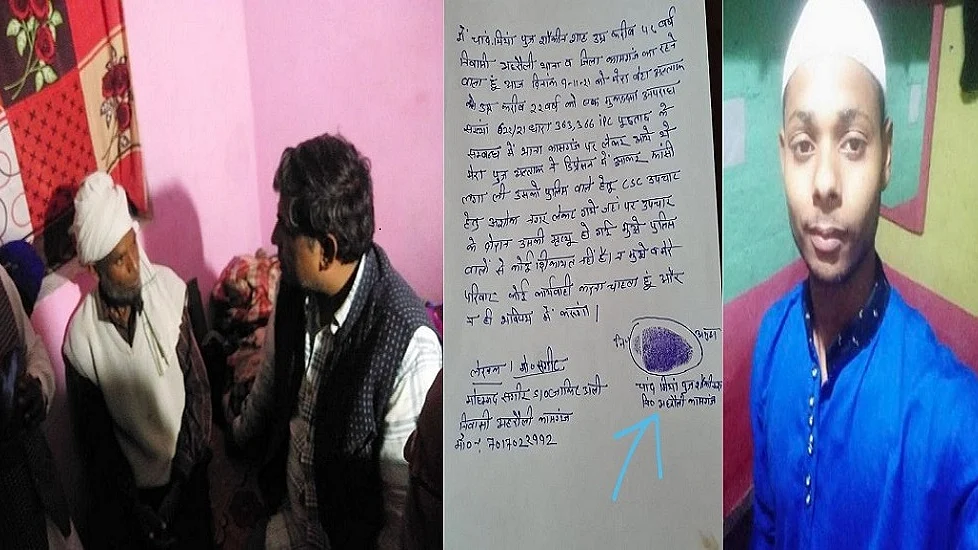 में चांद मियां पुत्र शौकीन शाह उम्र करीब ५५ वर्ष
निवासी अहरौली थाना व जिला कासगंज का रहने
वाला हूं आज दिनांक 9-11-21 को मेरा बेटा अल्ताफ
को उम्र करीब २२ वर्ष को एक मुकदमा अपराध
संख्या धारा 363,366 IPC पूछताछ के
सम्बन्ध में थाना कासगंज पर लेकर आये थे
मेरा पुत्र अल्ताफ ने डिप्रेसन में आकर फांसी
लगा ली उसको पुलिस वाले हेतु CSC उपचार
हेतु अशोक नगर लेकर गये जहां पर उपचार
के दौरान उसकी मृत्यू हो गई मुझे पुलिस
वालों से कोई शिकायत नहीं है। न मुझे व मेरे
परिवार कोई कार्यवाही करना चाहता हूं और
न ही भविष्य में करूंगा।
लेखक। मो० सगीर
मोहम्मद सगीर S/O जाकिर अली
निवासी अहरौली कासगंज
मो०-: 7017023992
निo अंगूठा
चांद मियां पुत्र शौकीन
निo अहरौली कासगंज